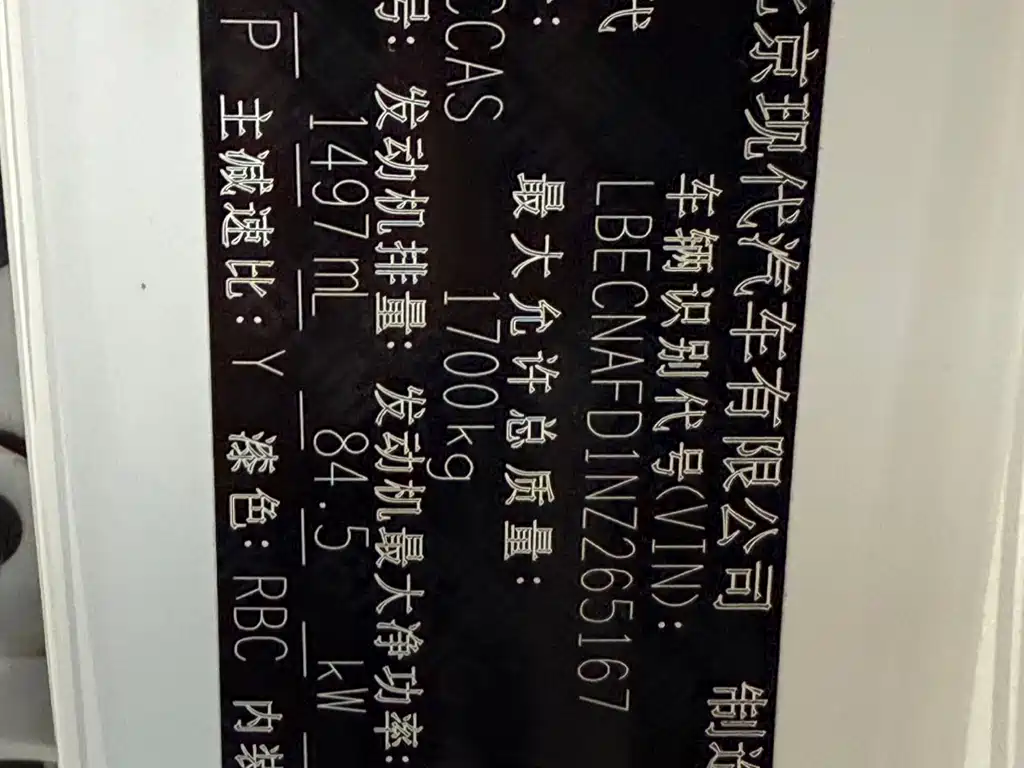 北京现代汽车有限公司 制造
车辆识别代号(VIN):
代 LBECNAFD1NZ265167
: 最大允许总质量:
CCAS 1700kg
号: 发动机排量: 发动机最大净功率:
1497 mL 84.5 kW
P 主减速比: Y 漆色: RBC 内装